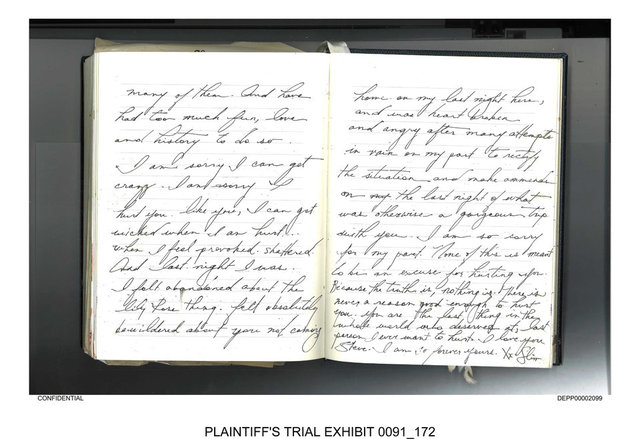 many of them. And have
had too much fun, love
and history to do so.
I am sorry I can get
crazy. I am sorry I
hurt you. like you, I can get
wicked when I am hurt...
when I feel provoked. shattered.
And last night I was.
I felt abandoned about the
Rose thing. felt absolutely
bewildered about you not coming
home on my last night here,
and was heart broken
and angry after many attempts
in vain on my part to rectify
the situation and make ammends
on the last night of what
was otherwise a gorgeous trip
with you. I am so sorry
for my part. None of this is meant
to be an excuse for hurting you.
Because the truth is, nothing is. There is
never a reason good enough to hurt
you. you are the last thing in the
whole world who deserves it, last
person I ever want to hurt. I love you
Steve. I am, forever yours. Xx Slim
CONFIDENTIAL
DEPP00002099
PLAINTIFF'S TRIAL EXHIBIT 0091_172